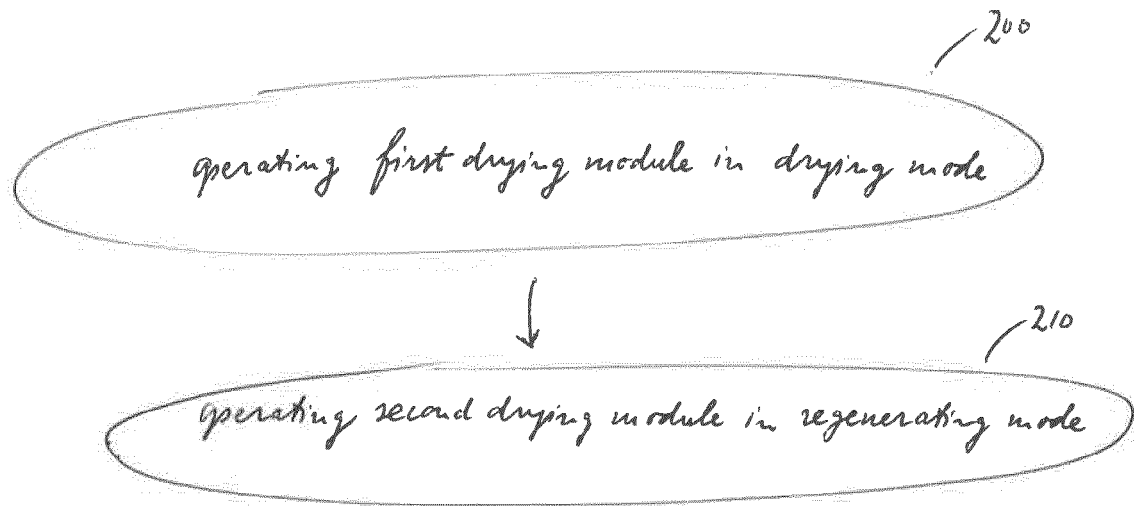 200
operating first drying module in drying mode
210
operating second drying module in regenerating mode